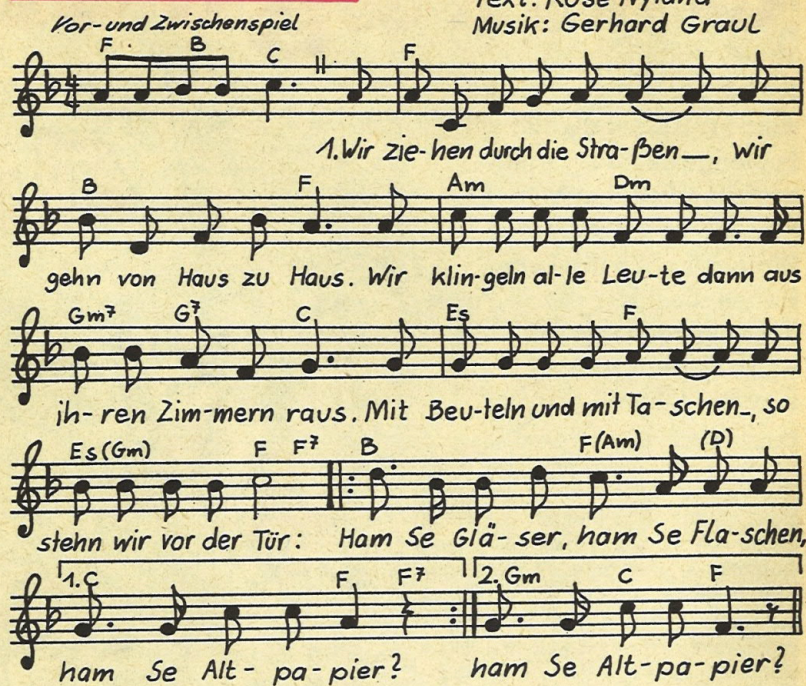 Text: Rose Nyland
Vor- und Zwischenspiel
Musik: Gerhard Graul
F B C F
1. Wir zie-hen durch die Stra-ßen_, wir
B F Am Dm
gehn von Haus zu Haus. Wir klin-geln al-le Leu-te dann aus
Gm7 G7 C Es F
ih-ren Zim-mern raus. Mit Beu-teln und mit Ta-schen_, so
Es (Gm) F F7 B F (Am) (D)
stehn wir vor der Tür: Ham Se Glä-ser, ham Se Fla-schen,
1. C F F7 2. Gm C F
ham Se Alt-pa-pier? ham Se Alt-pa-pier?